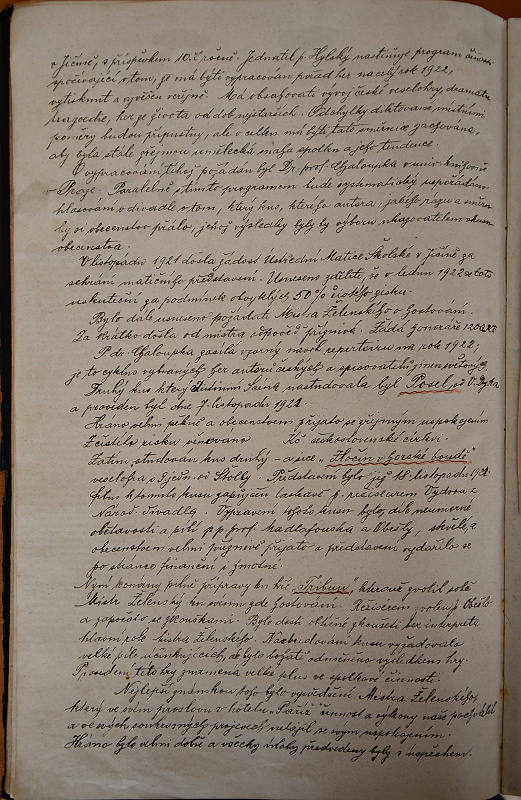 v Jičíně, s příspěvkem 10 Kč ročně. Jednatel p. Hylský nastiňuje program činnosti
spočívající v tom, že má býti vypracován pořad her na celý rok 1922,
vytisknut a vyvěšen veřejně. Má obsahovati vývoj české veselohry, dramatu
tragoedie, her ze života od dob nejstarších. Odchylky diktované místními
poměry budou přípustny, ale v celku má býti tato směrnice zachována,
aby byla stále zřejmou umělecká snaha spolku a jeho tendence.
O vypracování téhož požádán byl Dr. prof. Chaloupka v univ. knihovně
v Praze. Paralelně s tímto programem bude systematicky uspořádáno
hlasování v divadle o tom, který kus, kterého autora, jakého rázu a směru
by si obecenstvo přálo, jehož výsledky byly by výboru ukazovatelem vkusu
obecenstva.
V listopadu 1921 došla žádost Ústřední Matice Školské v Jičíně za
sehrání matičního představení. Usneseno sděliti, že v lednu 1922 se toto
uskuteční za podmínek obvyklých 50% čistého zisku.
Bylo dále usneseno požádati Mistra Želenského o hostování.
Za krátko došla od mistra odpověď příznivá. Žádá honoráře 1200 Kč
P. dr. Chaloupka zaslal vzorný návrh repertoiru na rok 1922;
je to cyklus vybraných her autorů českých a spisovatelů jmen světových.
Druhý kus který nastudovala byl Posel, od V. Dyka
a proveden byl dne 7. listopadu 1921.
Hráno velmi pěkně a obecenstvem přijato se zřejmým uspokojením
Z čistého zisku věnováno Kč československé církvi.
Zatím studován kus druhý - a sice „Zločin v horské boudě"
veselohra o 3 jedn. od Štolby. Představení bylo již 18. listopadu 1921.
k tomuto kusu zapůjčen laskavě p. režisérem Vydrou z
Národ. divadla. Vypravení tohoto kusu bylo, dík neúmorné
obětavosti a píli p. p. prof. a Obesly, skvělé, a
obecenstvem velmi příznivě přijato a představení vydařilo se
po stránce finanční i hmotné.
Nyní konány pilné přípravy ku hře „Tribun", kterouž zvolil sobě
Mistr Želenský ku svému zde hostování. Režisérem zvolen p.
a započato se zkouškami. Bylo dosti obtížné zkoušeti bez interpreta
hlavní role mistra Želenského. Nastudování kusu vyžadovalo
velké píle účinkujících, ale bylo bohatě odměněno výsledkem hry.
Provedení této hry znamená velké plus ve spolkové činnosti.
Nejlepší známkou toho bylo vyjádření Mistra Želenského,
který ve svém proslovu v hotelu „Paříž" činnost a výkony naše pochválil
a ve svých soukromých projevech netajil se svým uspokojením.
Hráno bylo velmi dobře a všecky úlohy předvedeny byly s úspěchem.